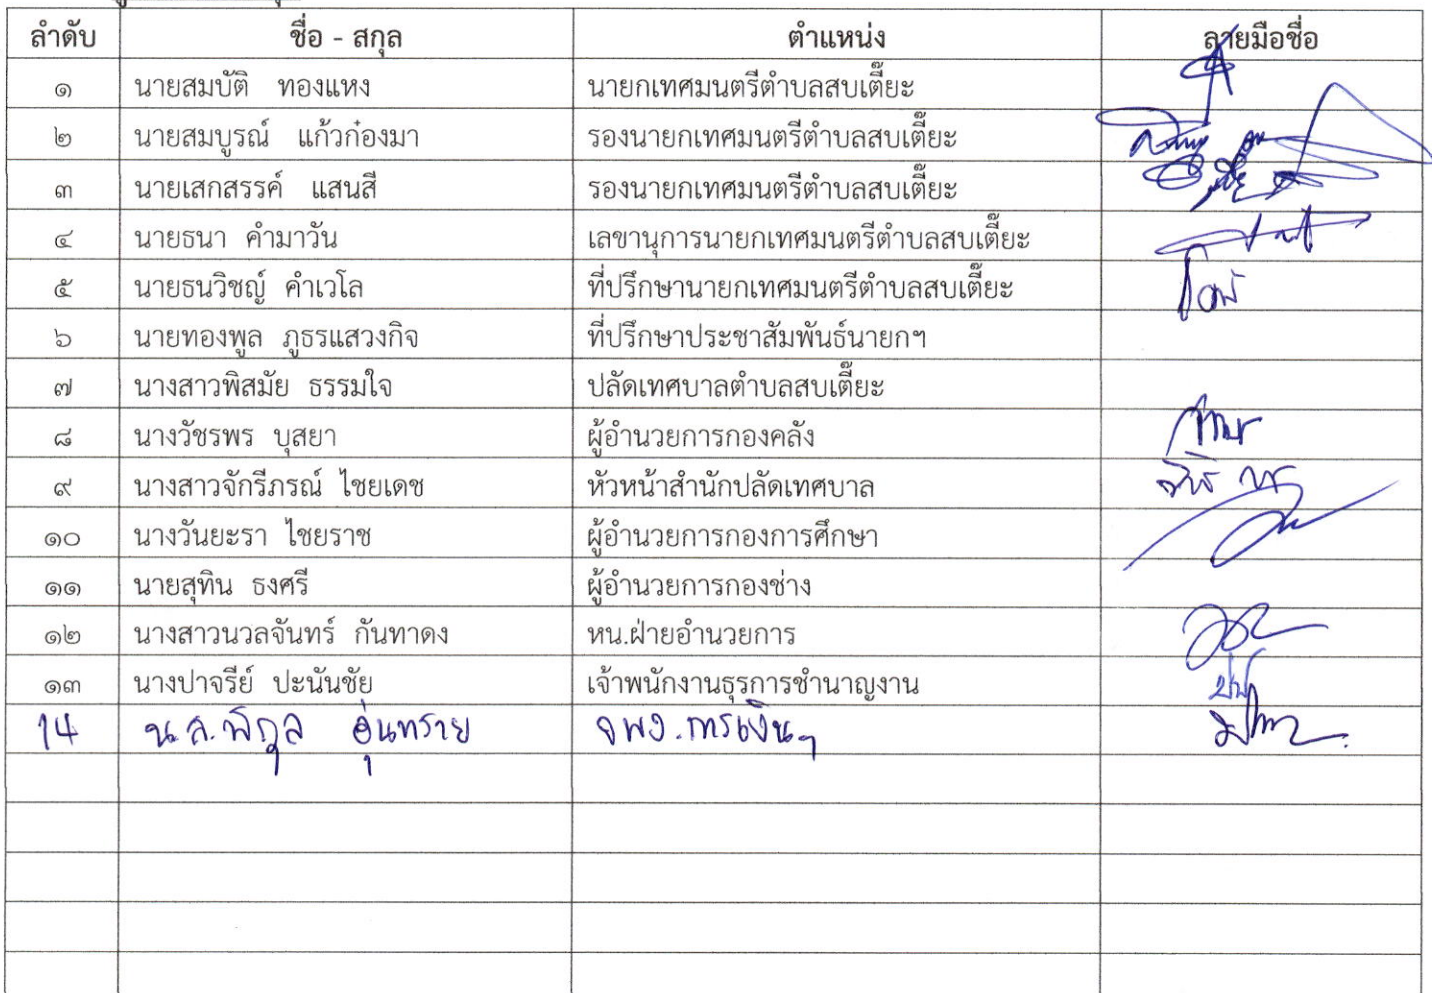 ลำดับ ชื่อ - สกุล ตำแหน่ง ลายมือชื่อ
๑ นายสมบัติ ทองแหง นายกเทศมนตรีตำบลสบเตี๊ยะ
๒ นายสมบูรณ์ แก้วก๋องมา รองนายกเทศมนตรีตำบลสบเตี๊ยะ
๓ นายเสกสรรค์ แสนสี รองนายกเทศมนตรีตำบลสบเตี๊ยะ
๔ นายธนา คำมาวัน เลขานุการนายกเทศมนตรีตำบลสบเตี๊ยะ
๕ นายธนวิชญ์ คำเวโล ที่ปรึกษานายกเทศมนตรีตำบลสบเตี๊ยะ
๖ นายทองพูล ภูธรแสวงกิจ ที่ปรึกษาประชาสัมพันธ์นายกฯ
๗ นางสาวพิสมัย ธรรมใจ ปลัดเทศบาลตำบลสบเตี๊ยะ
๘ นางวัชรพร บุสยา ผู้อำนวยการกองคลัง
๙ นางสาวจักรีภรณ์ ไชยเดช หัวหน้าสำนักปลัดเทศบาล
๑๐ นางวันยะรา ไชยราช ผู้อำนวยการกองการศึกษา
๑๑ นายสุทิน ธงศรี ผู้อำนวยการกองช่าง
๑๒ นางสาวนวลจันทร์ กันทาดง หน.ฝ่ายอำนวยการ
๑๓ นางปาจรีย์ ปะนันชัย เจ้าพนักงานธุรการชำนาญงาน
14 น.ส.พิกุล อุ่นทราย จพง.การเงินฯ